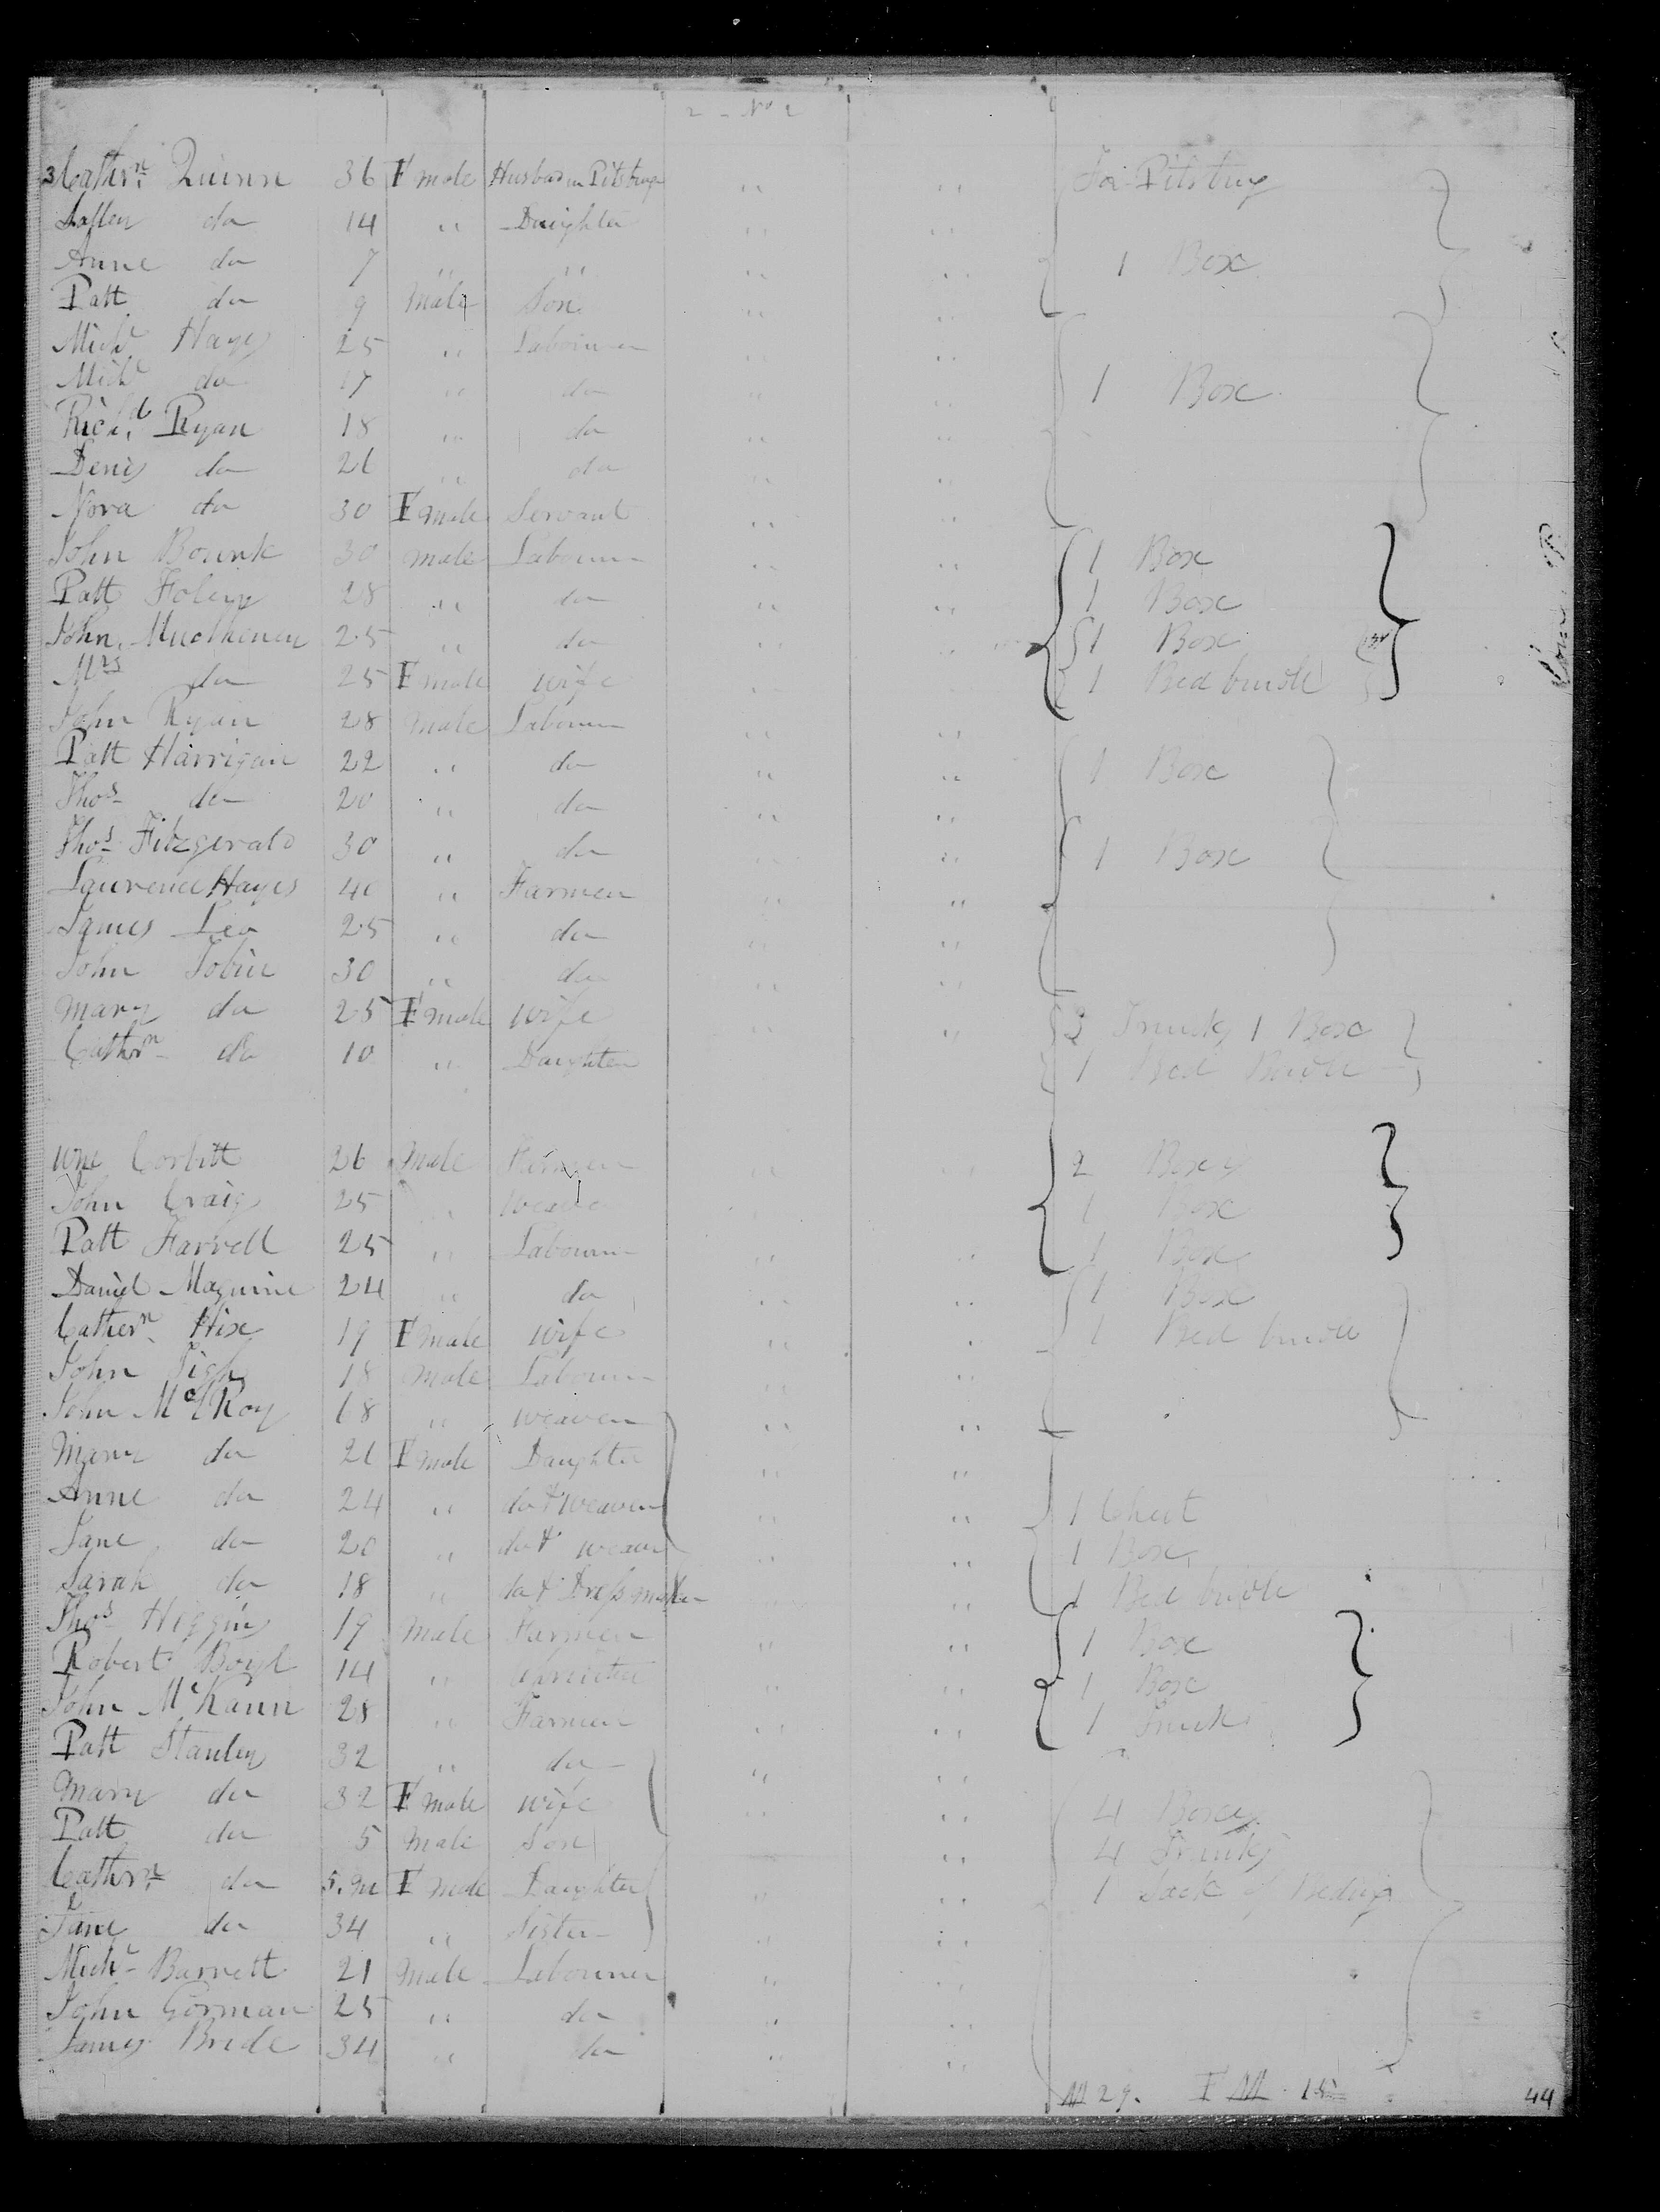 2 - No 2
3 Cathrn. Quinn 36 Fmale Husbd in Pitsburg " " For Pitsburg
da 14 " Daughter " "
Anne da 7 " " " " 1 Box
Patt da 9 Male Son " "
Michl Hayes 25 " Labourer " "
Michl da 17 " da " " 1 Box
Richd. Ryan 18 " da " "
Denis da 21 " da " "
Nora da 30 Fmale Servant " "
John Bourk 30 male Labourer " " 1 Box
Patt Foley 28 " da " " 1 Box
John 25 " da " " 1 Box
Mrs da 25 Fmale wife " " 1 Bed bundle
John Ryan 28 Male Labourer " "
Patt Harrigan 22 " da " " 1 Box
Thos da 20 " da " "
Thos Fitzgerald 30 " da " " 1 Box
Laurence Hayes 40 " Farmer " "
James Leo 25 " da " "
John Tobin 30 " da " "
Mary da 25 Fmale wife " " Trunks 1 Box
Cathrn da 10 " Daughter 1 Bed Bundle
Wm Corbitt 26 Male Farmer " " 2 Boxes
John Craig 25 " weaver 1 Box
Patt Farrell 25 " Labourer " " 1 Box
Daniel Maguire 24 " da " " 1 Box
Cathern Hix 19 Fmale wife " " 1 Bed bundle
John 18 Male Labourer " "
John McIlRoy 18 " weaver " "
Mary da 21 Fmale Daughter " "
Anne da 24 " da & weaver " " 1 Chest
Jane da 20 " da & weaver " " 1 Box
Sarah da 18 " da & Dressmaker " " 1 Bed bundle
Thos Higgins 19 Male Farmer " " 1 Box
Robert Boyl 14 " " " 1 Box
John McKann 28 " Farmer " " 1 Trunk
Patt Stanley 32 " da " "
Mary da 32 Fmale wife " " 4 Boxes
Patt da 5 Male Son " 4 Trunks
Cathrn. da 5.m Fmale Daughter " " 1 Sack of Beding
Jane da 34 " Sister " "
Michl Barnett 21 Male Labourer " "
John Gorman 25 " da " "
James Bride 34 " da " "
M 29. F M 15
44